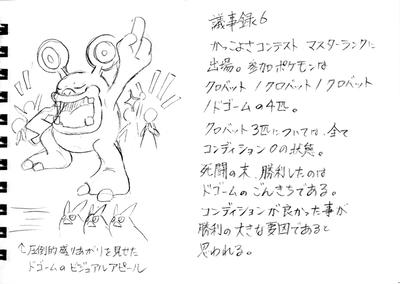 議事録6
かっこよさコンテスト マスターランクに
出場。参加ポケモンは
クロバット / クロバット / クロバット
/ ドゴームの4匹。
クロバット3匹については、全て
コンディション0の状態。
死闘の末、勝利したのは
ドゴームのごんきちである。
コンディションが良かった事が
勝利の大きな要因であると
思われる。
↑圧倒的盛りあがりを見せた
ドゴームのビジュアルアピール